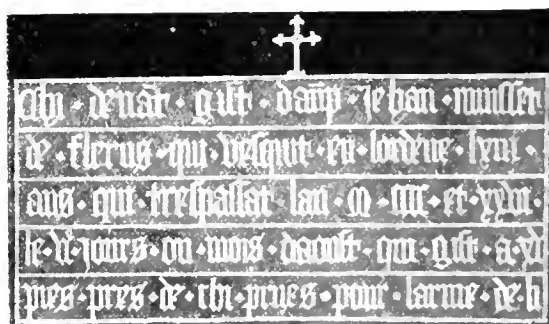 Chy · devāt · gist · damp · Jehan · musset
de · flerus · qui · vesquit · en · lordene · lxvi ·
ans · qui · trespassat · lan · m · et ·
le · jours · ou · mois · daoust · qui · gist · a ·
pies · pres · de · chi · pries · pour · larme · de · li